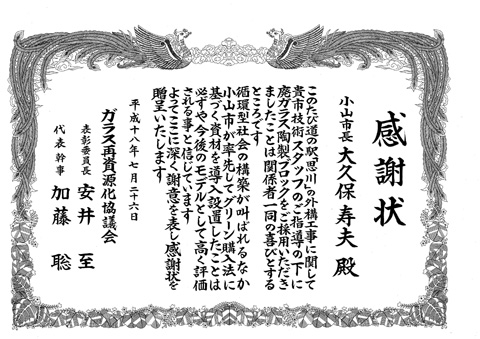 感謝状
小山市長 大久保寿夫 殿
このたび道の駅「思川」の外構工事に関して
貴市技術スタッフのご指導の下に
廃ガラス陶製ブロックをご採用いただき
ましたことは関係者一同の喜びとする
ところです
循環型社会の構築が叫ばれるなか
小山市が率先してグリーン購入法に
基づく資材を導入設置したことは
必ずや今後のモデルとして高く評価
される事と信じています
よってここに深く謝意を表し感謝状を
贈呈いたします
平成十八年七月二十六日
ガラス再資源化協議会
表彰委員長 安井 至
代表幹事 加藤 聡